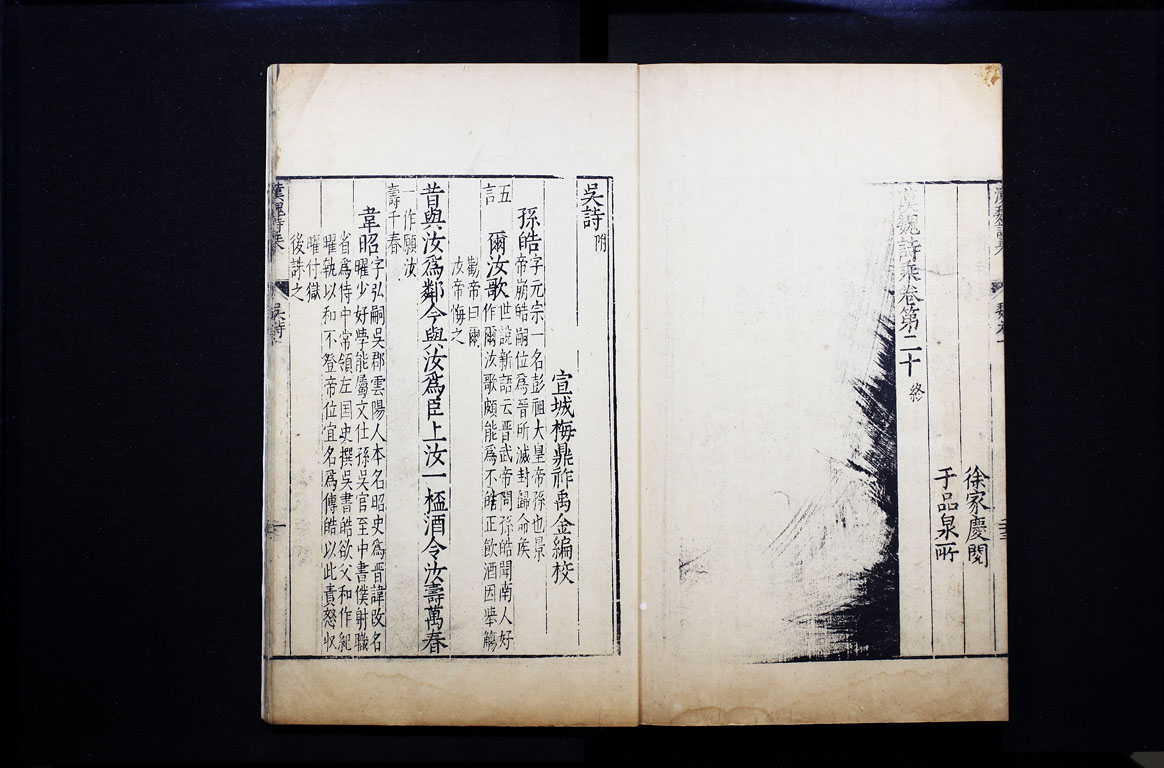 漢魏詩乘
魏卷一
徐家慶閱
于品泉㪽
漢魏詩乘卷第二十 終
吳詩 附
宣城梅鼎祚禹金編校
孫皓 字元宗一名彭祖大皇帝孫也景
帝崩皓嗣位爲晉所滅封歸命侯
五言 爾汝歌 世說新語云晉武帝問孫皓聞南人好
作爾汝歌頗能爲不皓正飲酒因舉觴
勸帝曰爾
汝帝悔之
昔與汝爲鄰今與汝爲臣上汝一桮酒令汝壽萬春
一作願汝
壽千春
韋昭 字弘嗣吳郡雲陽人本名昭史爲晋諱改名
曜少好學能屬文仕孫吳官至中書僕射職
省爲侍中常領左国史撰吳書皓欲父和作紀
曜執以和不登帝位宜名爲傳皓以此責怒收
曜付獄
後誅之
漢魏詩乘
吳詩
一